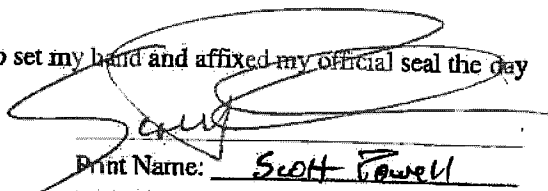 o set my hand and affixed my official seal the day
Print Name: Scott Powell